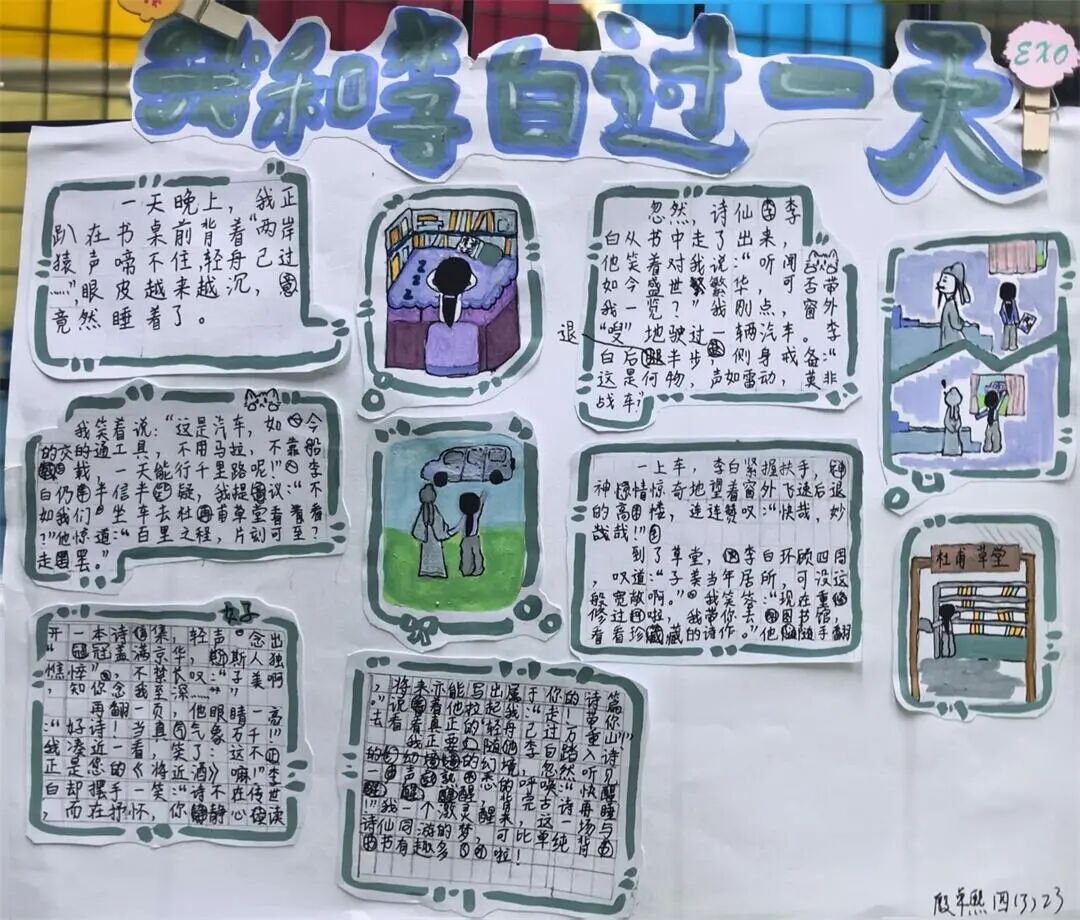 我和李白过一天
EXO
一天晚上，我正
趴在书桌前背着“两岸
猿声啼不住，轻舟已过
……”，眼皮越来越沉，
竟然睡着了。
忽然，诗仙李
白从书中走了出来，
他笑着对我说：“听闻
如今盛世繁华，可否带
我一览？”我刚点，窗外
“嗖”地驶过一辆汽车。李
白后退半步，侧身戒备：“
这是何物，声如雷动，莫非
战车？”
我笑着说：“这是汽车，如今
的交的通工具，不用马拉，不靠船
载，一天能行千里路呢！”李
白仍半信半疑，我提议：“不
如我们坐车去杜甫草堂看看
？”他惊道：“百里之程，片刻可至？
走罢。”
一上车，李白紧握扶手，
神情惊奇地望着窗外飞速后退
的高楼，连连赞叹：“快哉，妙
哉哉！”
到了草堂，李白环顾四周
，叹道：“子美当年居所，可没这
般宽敞啊。”我笑答：“现在重
修过，我带你去图书馆，
看看珍藏的诗作。”他随手翻
杜甫草堂
开一本诗集，轻声念出
“冠盖满京华，斯人独
憔悴”，不禁长叹：“子美啊
，知你念我至深……”
再翻一页，他眼睛一亮
：“好诗！当真气象万千！”
我凑近一看，笑了：“这不
正是您的《将进酒》嘛！”李
白却摆手一笑：“诗不在传世
，而在抒怀，你静心读
，将来亦能写出属于你的诗篇
诗仙一同游的梦，可比单纯背
书有趣多啦！
殷卓熙 四(3) 23